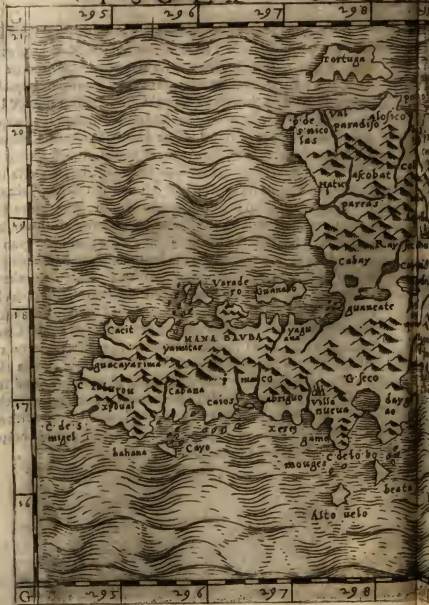 G 295 296 297 298
21
Tortuga
20
p. de
s. nico
las
Val
paradiso
Alosico
Hatu
ascobat
parcas
19
Ray
Cabay
guancate
Vorade
ro
Guanabo
18
Cacit
MANA BAVBA
yaguana
yamitar
guacayarima
G. seco
17
C. tiburou
xpoual
cabana
caios
maco
abriguo
Villa
nueua
dayg
ao
C. de S.
migel
bahana
Cayo
xeso
gamo
mouges
C. de lobo
beata
16
Alto uelo
G 295 296 297 298